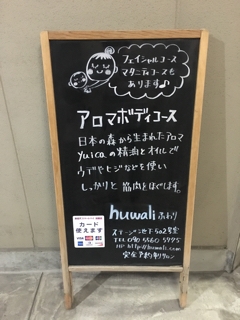 フェイシャルコース
マタニティコースも
あります♪
アロマボディコース
日本の森から生まれたアロマ
yuicaの精油とオイルで
ウデやヒジなどを使い
しっかりと筋肉をほぐします。
huwali ふわり
カード
使えます
VISA
ステージ
地下602号室
TEL 090
5995
HP http://huwali.com
完全予約制サロン